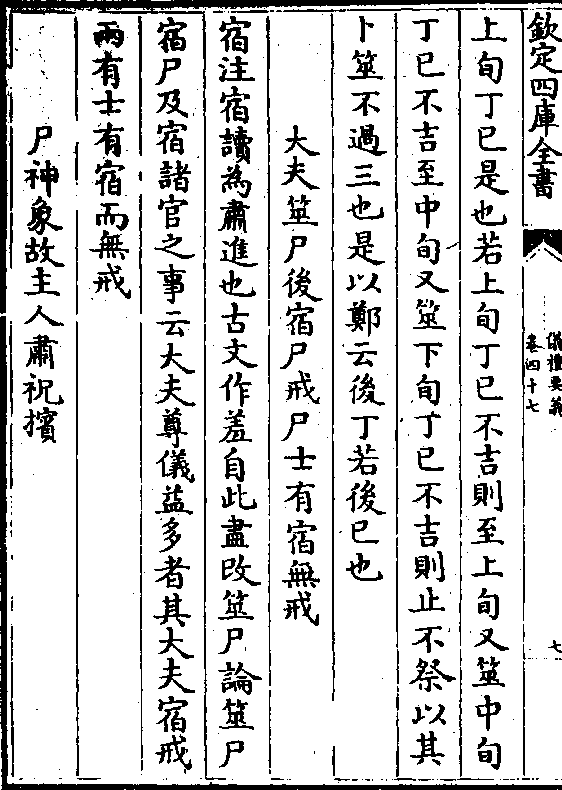 欽定四庫全書
儀禮要義
卷四十七
七
上旬丁巳是也若上旬丁巳不吉則至上旬又筮中旬
丁巳不吉至中旬又筮下旬丁巳不吉則止不祭以其
卜筮不過三也是以鄭云後丁若後巳也
大夫筮尸後宿尸戒尸士有宿無戒
宿注宿讀為肅進也古文作羞自此盡改筮尸論筮尸
宿尸及宿諸官之事云大夫尊儀益多者其大夫宿戒
兩有士有宿而無戒
尸神象故主人肅祝擯